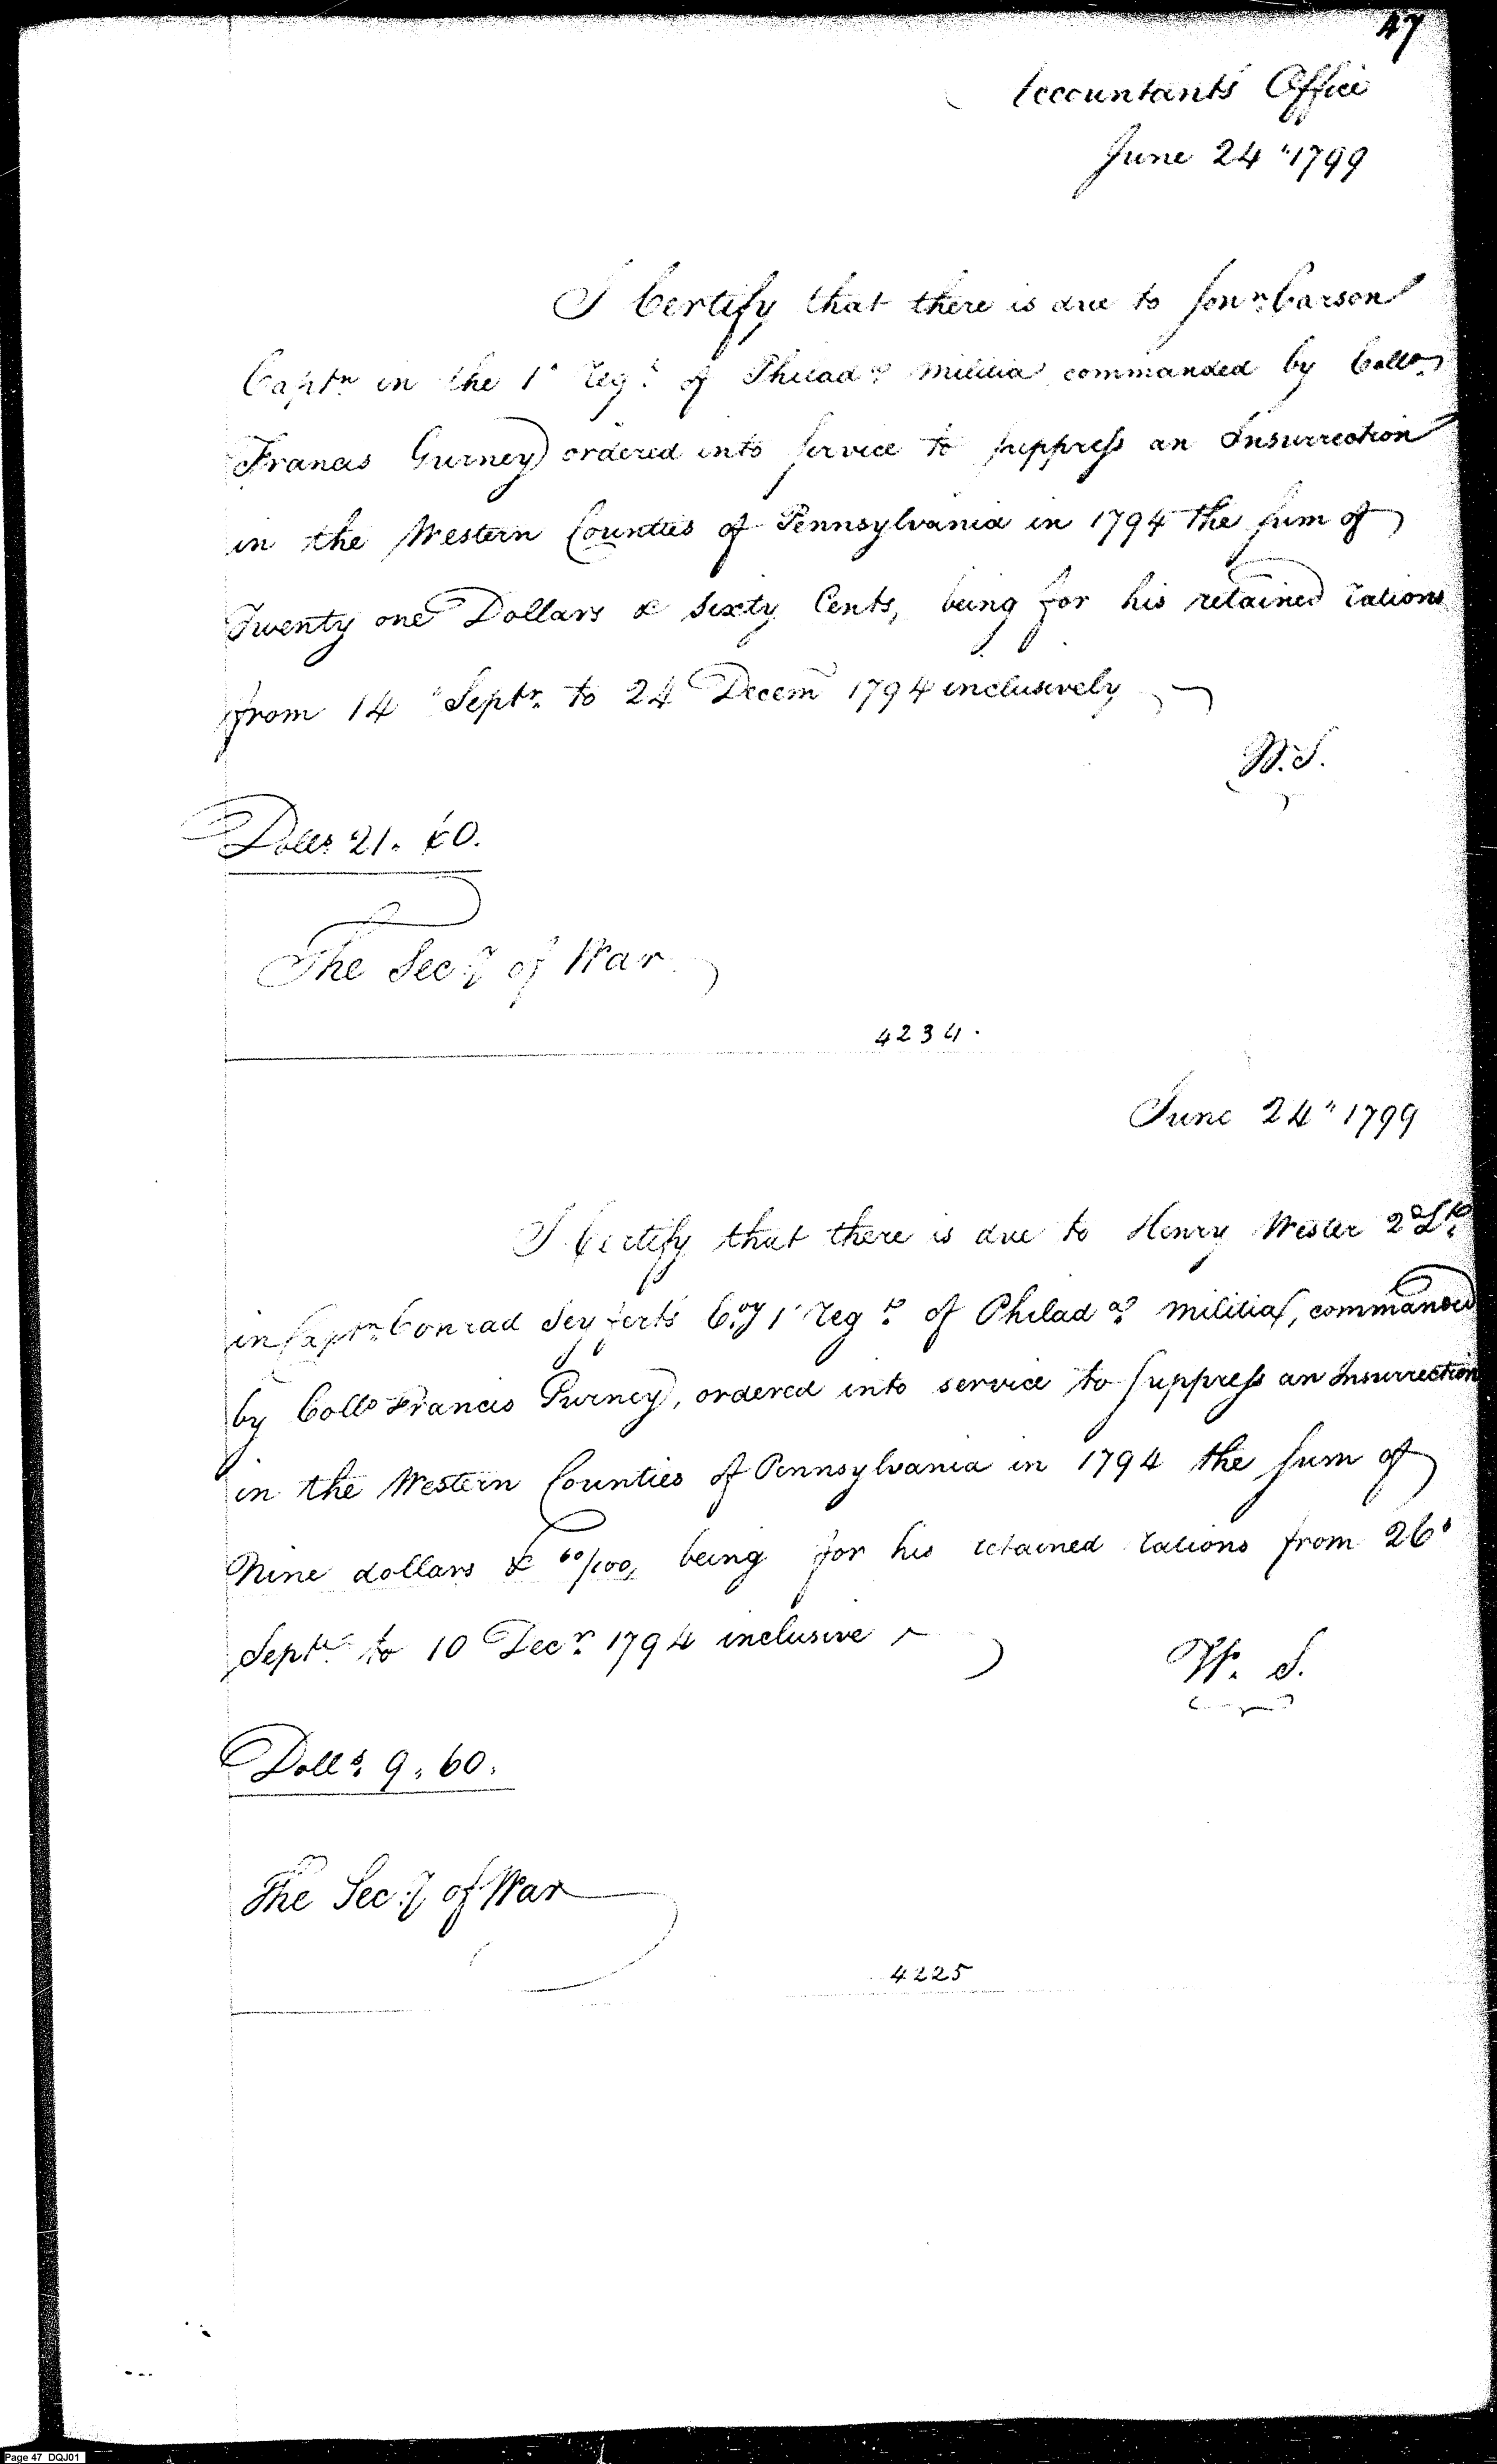 47
Accountants Office
June 24" 1799
I Certify that there is due to Jonn. Carson
Captn in the 1s Regt. of Philada. militia commanded by Collo.
Francis Gurney ordered into Service to suppress an Insurrection
in the Western Counties of Pennsylvania in 1794 the sum of
Twenty one Dollars & Sixty Cents, being for his retained rations
from 14" Septr. to 24 Decem 1794 inclusively
W.S.
Dolls. 21. 60.
The Secy. of War
4234.
June 24" 1799
I Certify that there is due to Henry Wester 2d Lt.
in Captn. Conrad Seyferts Coy. 1s Regt. of Philada. militia, commanded
by Collo Francis Gurney, ordered into service to suppress an Insurrection
in the Western Counties of Pennsylvania in 1794 the sum of
Nine dollars & 60/100, being for his retained rations from 26
Septr. to 10 Decr. 1794 inclusive
W. S.
Dolls. 9.60.
The Secy. of War
4225
Page 47 DQJ01